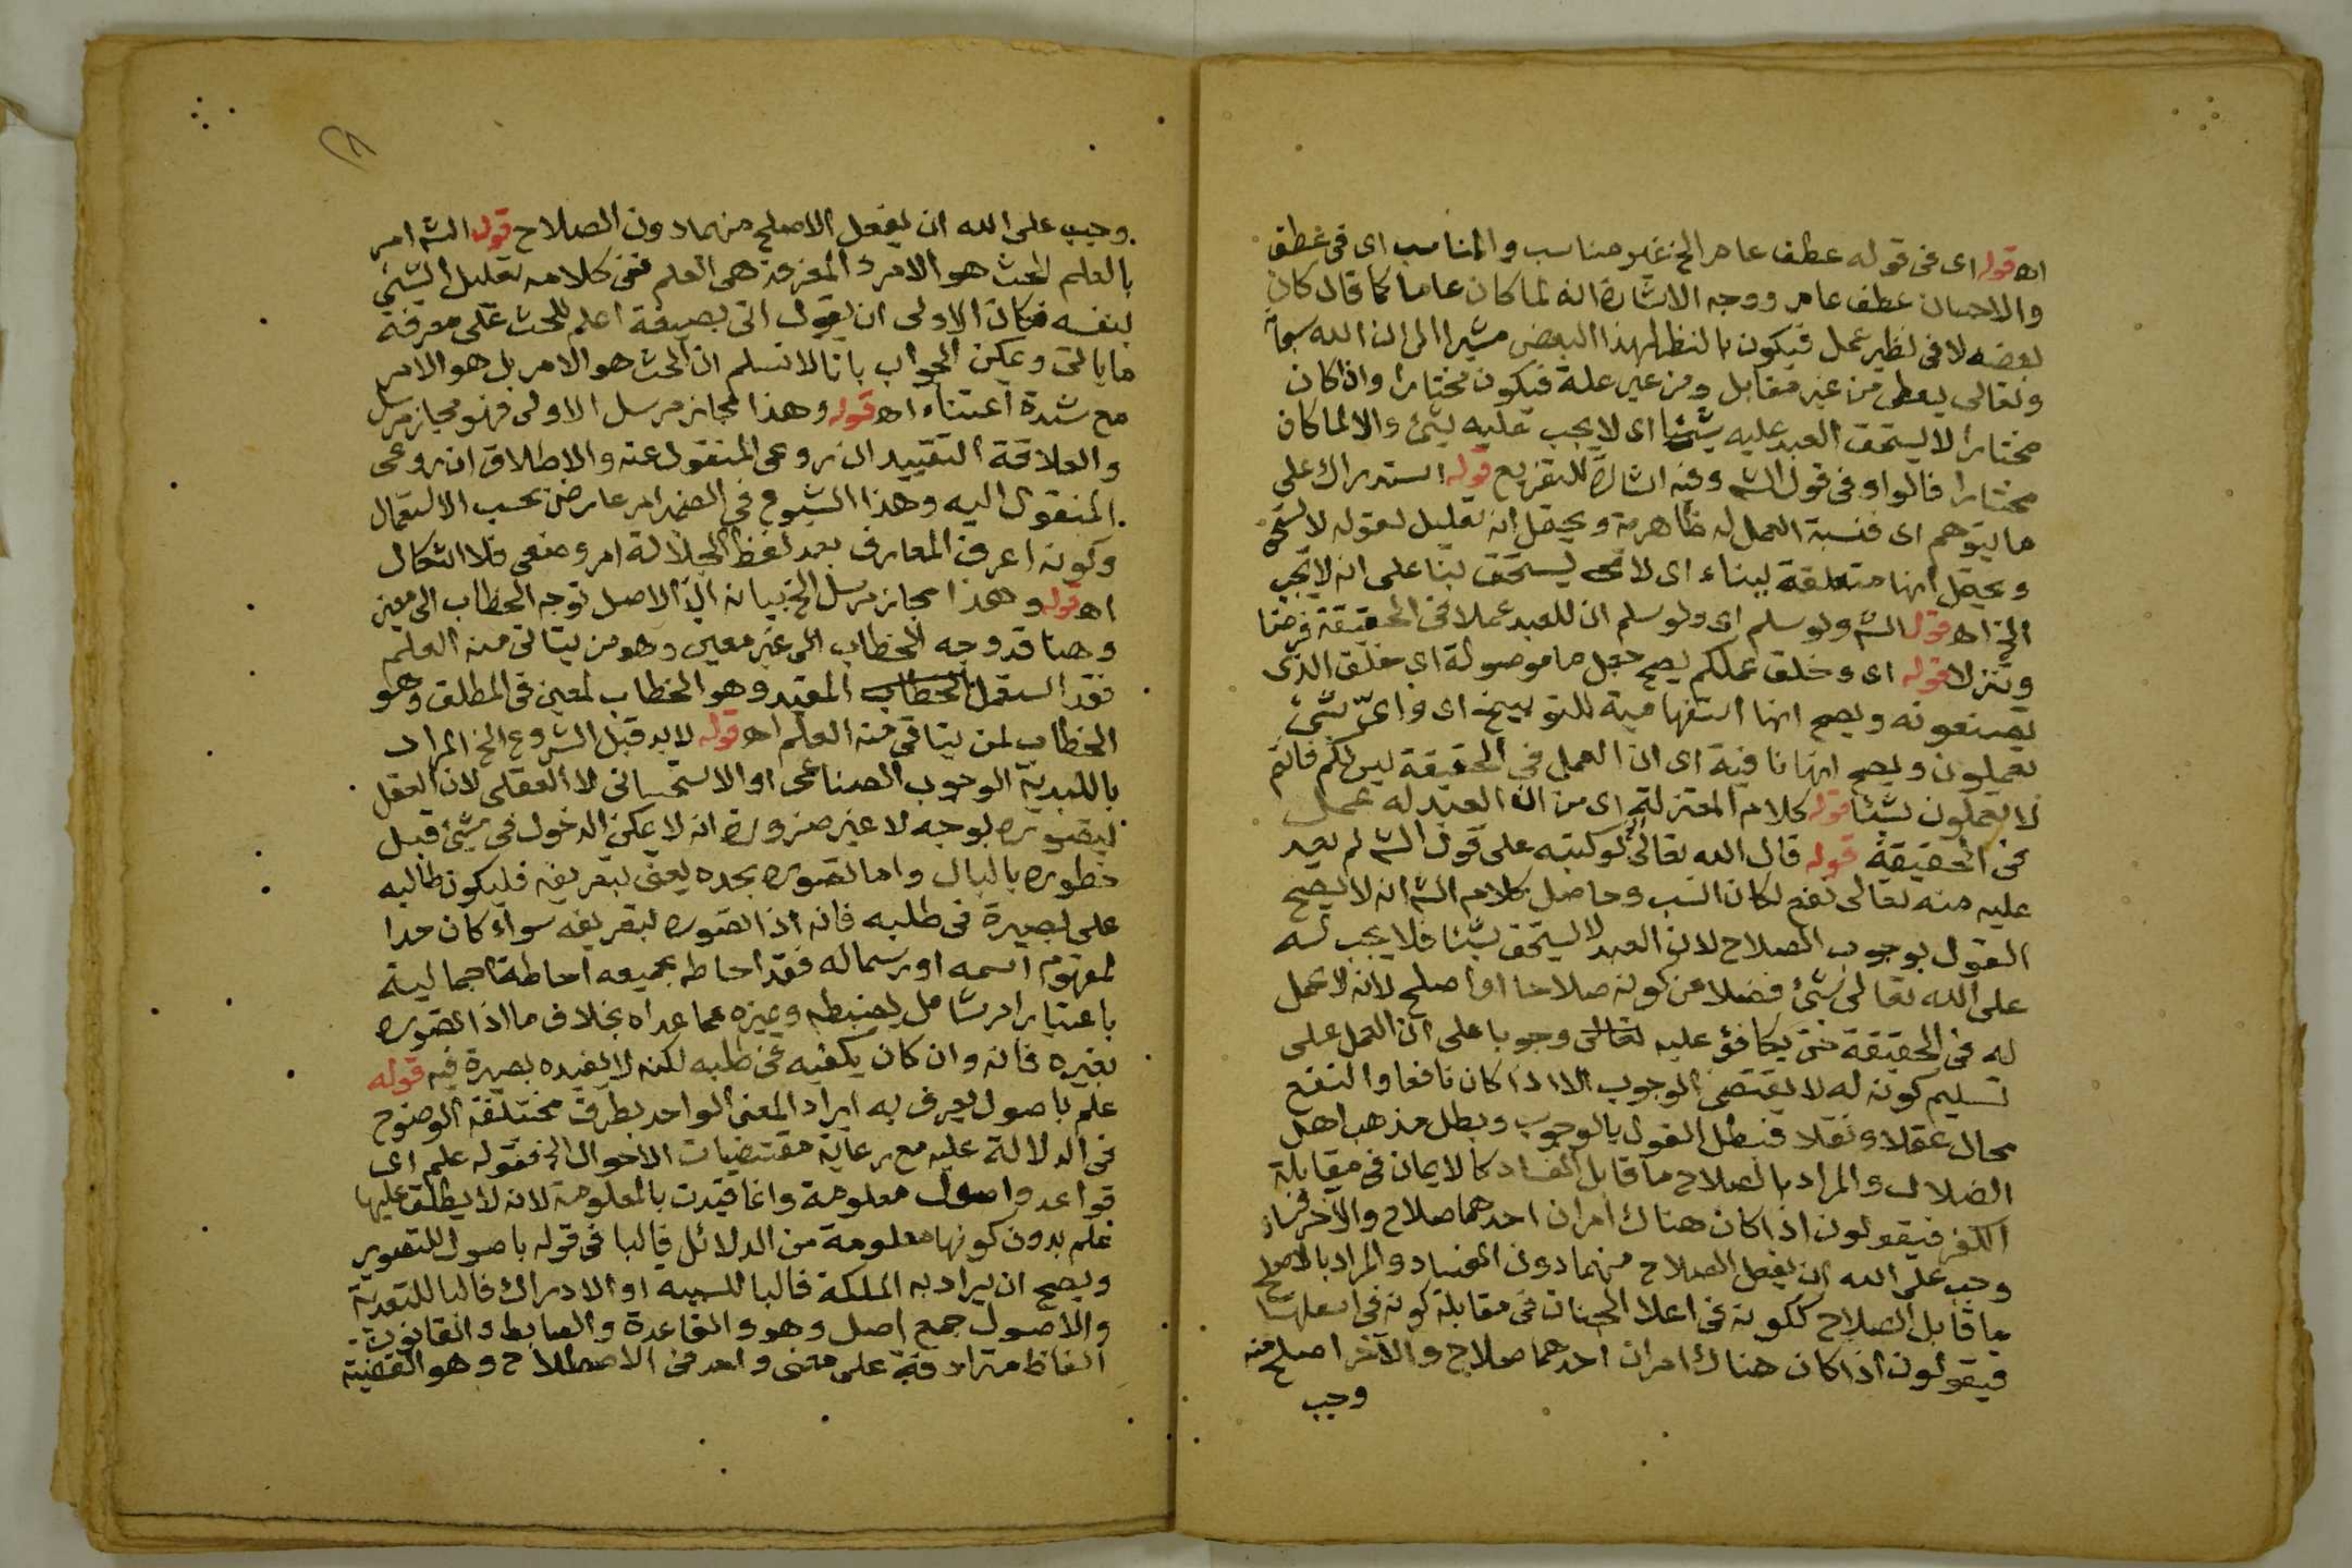 اه قوله اى فى قوله عطف عام الخ غير مناسب والمناسب اى فى عطف
والاحسان عطف عام ووجه الاشارة انه لما كان عاما كما قال كان
بعضه لا فى نظير عمل فيكون بالنظر لهذا البعض مشيرا الى ان الله سبحانه
وتعالى يعطى من غير مقابل ومن غير علة فيكون مختارا واذا كان
مختارا لا يستحق العبد عليه شيئا اى لا يجب عليه شئ والا لما كان
مختارا فالواو فى قول الشه وفيه اشارة للتفريع قوله استدراك على
ما يتوهم اى فنسبة العمل له ظاهرية ويحتمل انه تعليل لقوله لا يستحق
ويحتمل انها متعلقة ببناء اى لا يستحق بنا على انه لا يجب
الخ اه قول الشه ولو سلم اى ولو سلم ان للعبد عملا فى الحقيقة فرضا
وتنزلا قوله اى وخلق عملكم يصح جعل ما موصولة اى خلق الذى
تصنعونه ويصح انها استفهامية للتوبيخ اى واىّ شئ
تعملون ويصح انها نافية اى ان العمل فى الحقيقة ليس لكم فانتم
لا تعملون شيئا قوله كلام المعتزلة اى من ان العبد له عمل
فى الحقيقة قوله قال الله تعالى لو كتبه على قول الشه لم يعد
عليه منه تعالى نفع لكان انسب وحاصل كلام الشه انه لا يصح
القول بوجوب الصلاح لان العبد لا يستحق شيئا فلا يجب له
على الله تعالى شئ فضلا عن كونه صلاحا او اصلح لانه لا عمل
له فى الحقيقة حتى يكافؤ عليه تعالى وجوبا على ان العمل على
تسليم كونه له لا يقتضى الوجوب الا اذا كان نافعا والنفع
محال عقلا ونقلا فبطل القول بالوجوب وبطل مذهب اهل
الضلال والمراد بالصلاح ما قابل الفساد كالايمان فى مقابلة
الكفر فيقولون اذا كان هناك امران احدهما صلاح والآخر فساد
وجب على الله ان يفعل الصلاح منهما دون الفساد والمراد بالاصلح
ما قابل الصلاح ككونه فى اعلا الجنان فى مقابلة كونه فى اسفلها
فيقولون اذا كان هناك امران احدهما صلاح والآخر اصلح منه
وجب
وجب على الله ان يفعل الاصلح منهما دون الصلاح قوله الشه امر
بالعلم الحث هو الامر والمعرفة هى العلم ففى كلامه تعليل الشئ
بنفسه فكان الاولى ان يقول اتى بصيغة اعلم للحث على معرفة
ما ياتى ويمكن الجواب بانا لا نسلم ان الحث هو الامر بل هو الامر
مع شدة اعتناء اه قوله وهذا مجاز مرسل الاولى فهو مجاز مرسل
والعلاقة التقييد ان روعى المنقول عنه والاطلاق ان روعى
المنقول اليه وهذا الشيوع فى الضمير امر عارض بحسب الاستعمال
وكونه اعرف المعارف بعد لفظ الجلالة امر وضعى فلا اشكال
اه قوله وهذا مجاز مرسل الخ بيانه ان الاصل توجه الخطاب الى معين
وهنا قد وجه الخطاب الى غير معين وهو من يتاتى منه العلم
فقد استعمل الخطاب المقيد وهو الخطاب لمعين فى المطلق وهو
الخطاب لمن يتاتى منه العلم اه قوله لا بد قبل الشروع الخ المراد
باللابدية الوجوب الصناعى او الاستحسانى لا العقلى لان العقل
يتصوره بوجه لا غير ضرورة انه لا يمكن الدخول فى شئ قبل
خطوره بالبال واما تصوره بحده يعنى بتعريفه فليكون طالبه
على بصيرة فى طلبه فانه اذا تصوره بتعريفه سواء كان حدا
لمفهوم اسمه او رسما له فقد احاط بجميعه احاطة اجمالية
باعتبار امر شامل يضبطه ويميزه عما عداه بخلاف ما اذا تصوره
بغيره فانه وان كان يكفيه فى طلبه لكنه لا يفيده بصيرة فيه قوله
علم باصول يعرف به ايراد المعنى الواحد بطرق مختلفة الوضوح
فى الدلالة عليه مع رعاية مقتضيات الاحوال الخ فقوله علم اى
قواعد واصول معلومة وانما قيدت بالمعلومة لانه لا يطلق عليها
علم بدون كونها معلومة من الدلائل فالبا فى قوله باصول للتصوير
ويصح ان يراد به الملكة فالبا للسببيه او الادراك فالبا للتعدية
والاصول جمع اصل وهو والقاعدة والضابط والقانون
الفاظ مترادفة على معنى واحد فى الاصطلاح وهو القضية